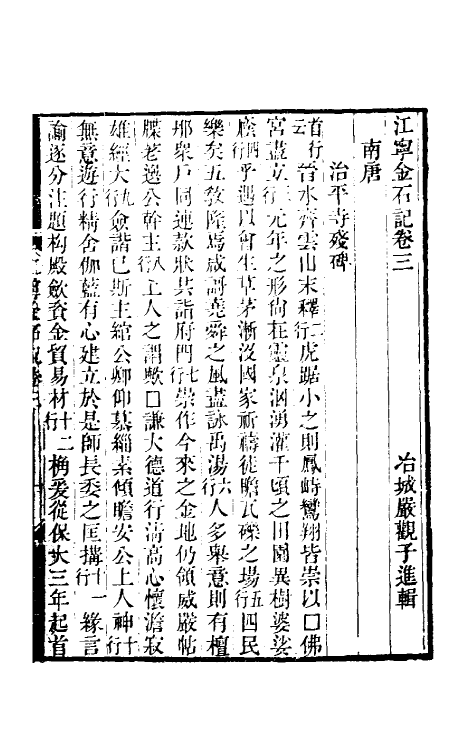 江寧金石記卷三
冶城嚴觀子進輯
南唐
治平寺殘碑
首行云皆水齊雲山末釋二行虎踞小之則鳳峙鸞翔皆崇以□佛
宮盡立三行元年之形尚在靈泉洶湧灌千頃之田園異樹婆娑
蔭四行乎遇以會生草茅漸沒國家祈禱徒瞻瓦礫之場五行四民
樂矣五教隆焉咸謌堯舜之風盡詠禹湯六行人多舉意則有檀
那眾戶同連款狀具詣府門七行崇作今來之金地仍領威嚴帖
牒老邊公幹主八行上人之謂歟□謙大德道行清高心懷澹寂
雄經大九行僉諧已斯主綰公卿仰慕緇素傾瞻安公上人神十行
無意遊行精舍伽藍有心建立於是師長委之匡搆十一行緣言
諭逐分注題构殿斂資金貿易材十二行桷爰從保大三年起首